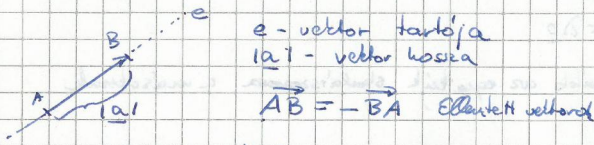 e
B
A
|a|
e - vektor tartója
|a| - vektor hossza
AB = -BA Ellentett vektorok